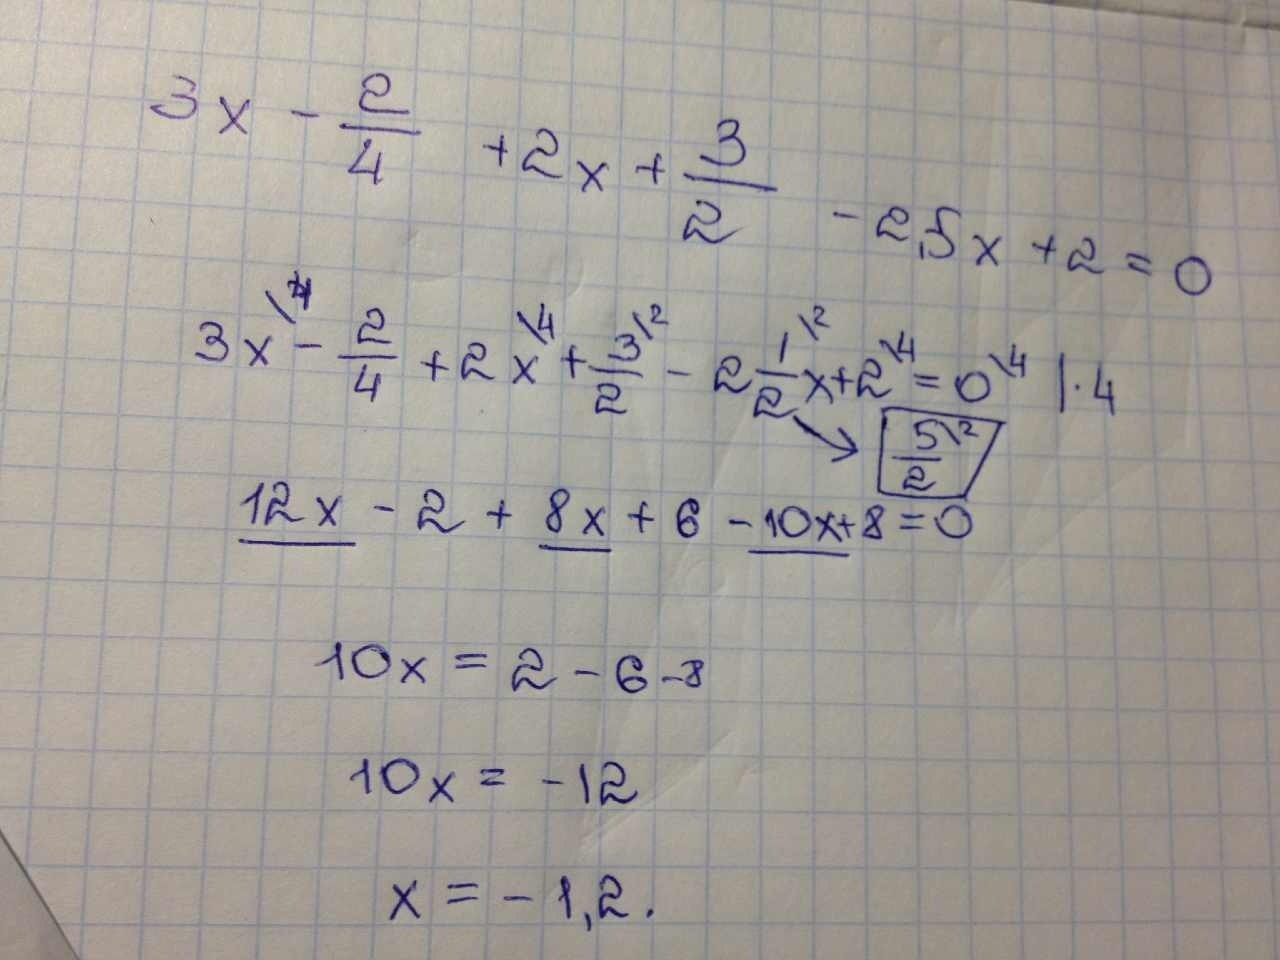 3x - 2/4 + 2x + 3/2 - 2,5x + 2 = 0
3x\4 - 2/4 + 2x\4 + 3\2/2 - 2 1\2/2 x + 2\4 = 0\4 | · 4
5\2/2
12x - 2 + 8x + 6 - 10x + 8 = 0
10x = 2 - 6 - 8
10x = - 12
x = - 1,2.